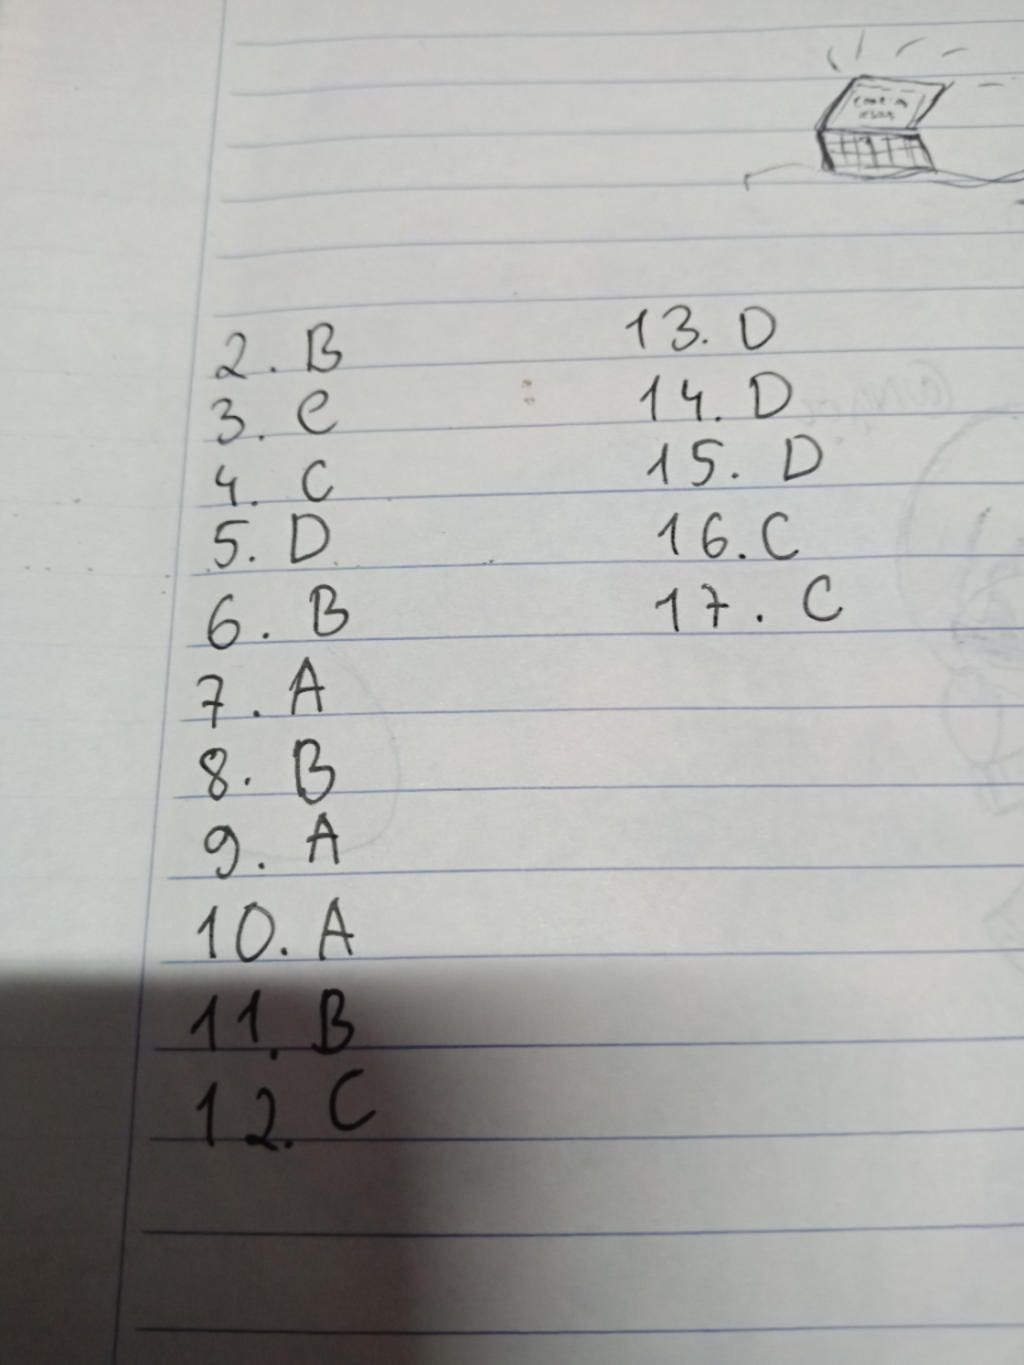 2. B
3. C
4. C
5. D
6. B
7. A
8. B
9. A
10. A
11. B
12. C
13. D
14. D
15. D
16. C
17. C